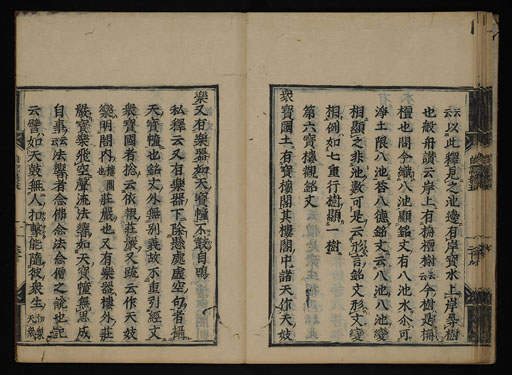 云以此釋見之池邊有岸寶水上岸尋樹
也般舟讚云岸上有栴檀樹云云今樹是栴
檀也問今纔八池顯銘文有八池水余可
淨土限八池答八德銘文云八池八池變
相顯之非池數可是云形言銘文形文變
相例如七重行樹顯一樹
第六寶樓觀銘文云
衆寶國土有寶樓閣其樓閣中諸天作天妓
樂又有樂器如天寶幢不鼓自鳴
私釋云又有樂器下除懸處虛空句者攝
天寶幢也銘文外無別義故不重列經文
衆寶者撿云依報莊嚴又疏云作天妓
樂明閣內也又有樂器樓外莊
嚴寶樂飛空聲流法響如天寶幢無思成
自事云云法響者念佛念法念僧之說也記
云譬如天鼓無人扣擊能隨彼衆生